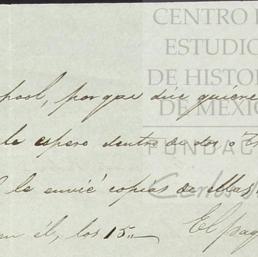 CENTRO
ESTUDIO
DE HISTOR
DE MÉXIC
FUNDAC
Carlos
pool, porque dice quiere
le espero dentro de dos o tr
le envié copias de ellas
en él, los 15.. El pag